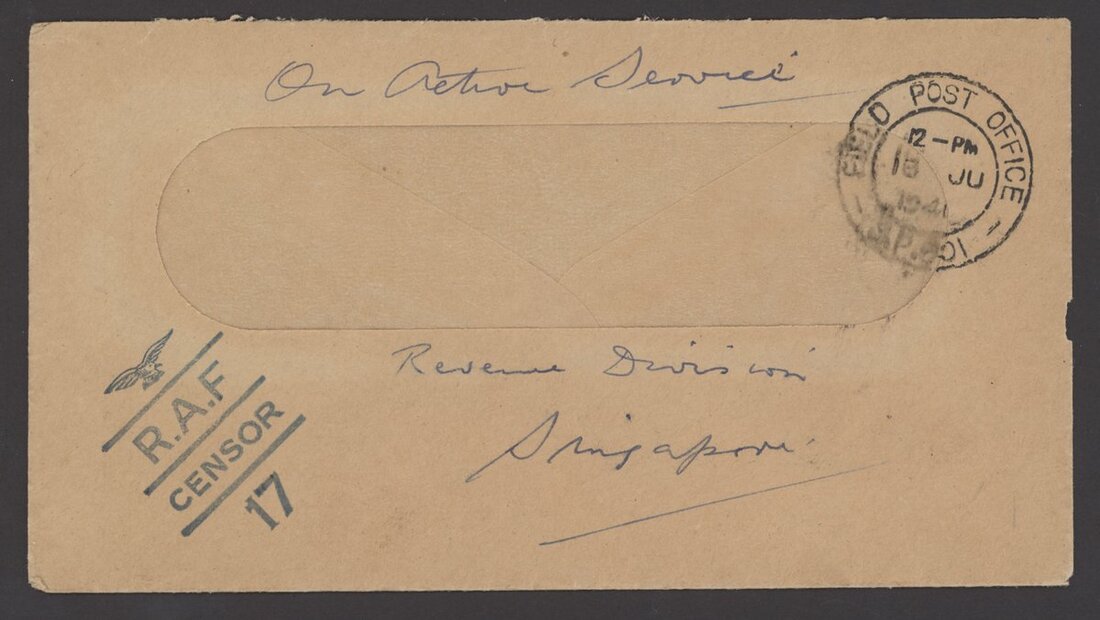 On Active Service
FIELD POST OFFICE
12 – PM
JU
Revenue Division
Singapore
R.A.F
CENSOR
17